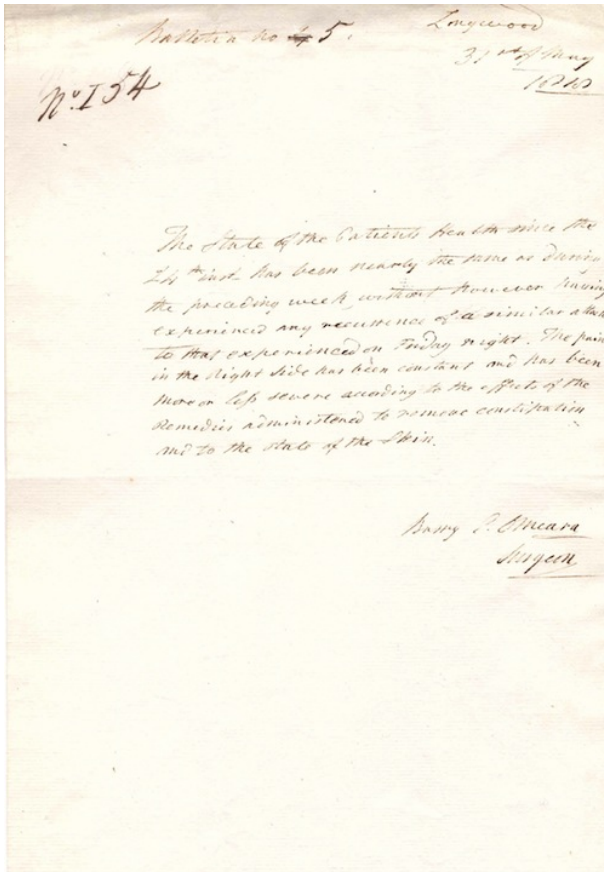 Bulletin no 4 5.
Longwood
31st of May
1818
No. I 54
The State of the Patients Health since the
24th inst. has been nearly the same as during
the preceding week, without however having
experienced any recurrence of a similar attack
to that experienced on Friday night. The pain
in the Right Side has been constant and has been
more or less severe according to the effects of the
Remedies administered to remove constipation
and to the state of the Skin.
Barry E. OMeara
Surgeon